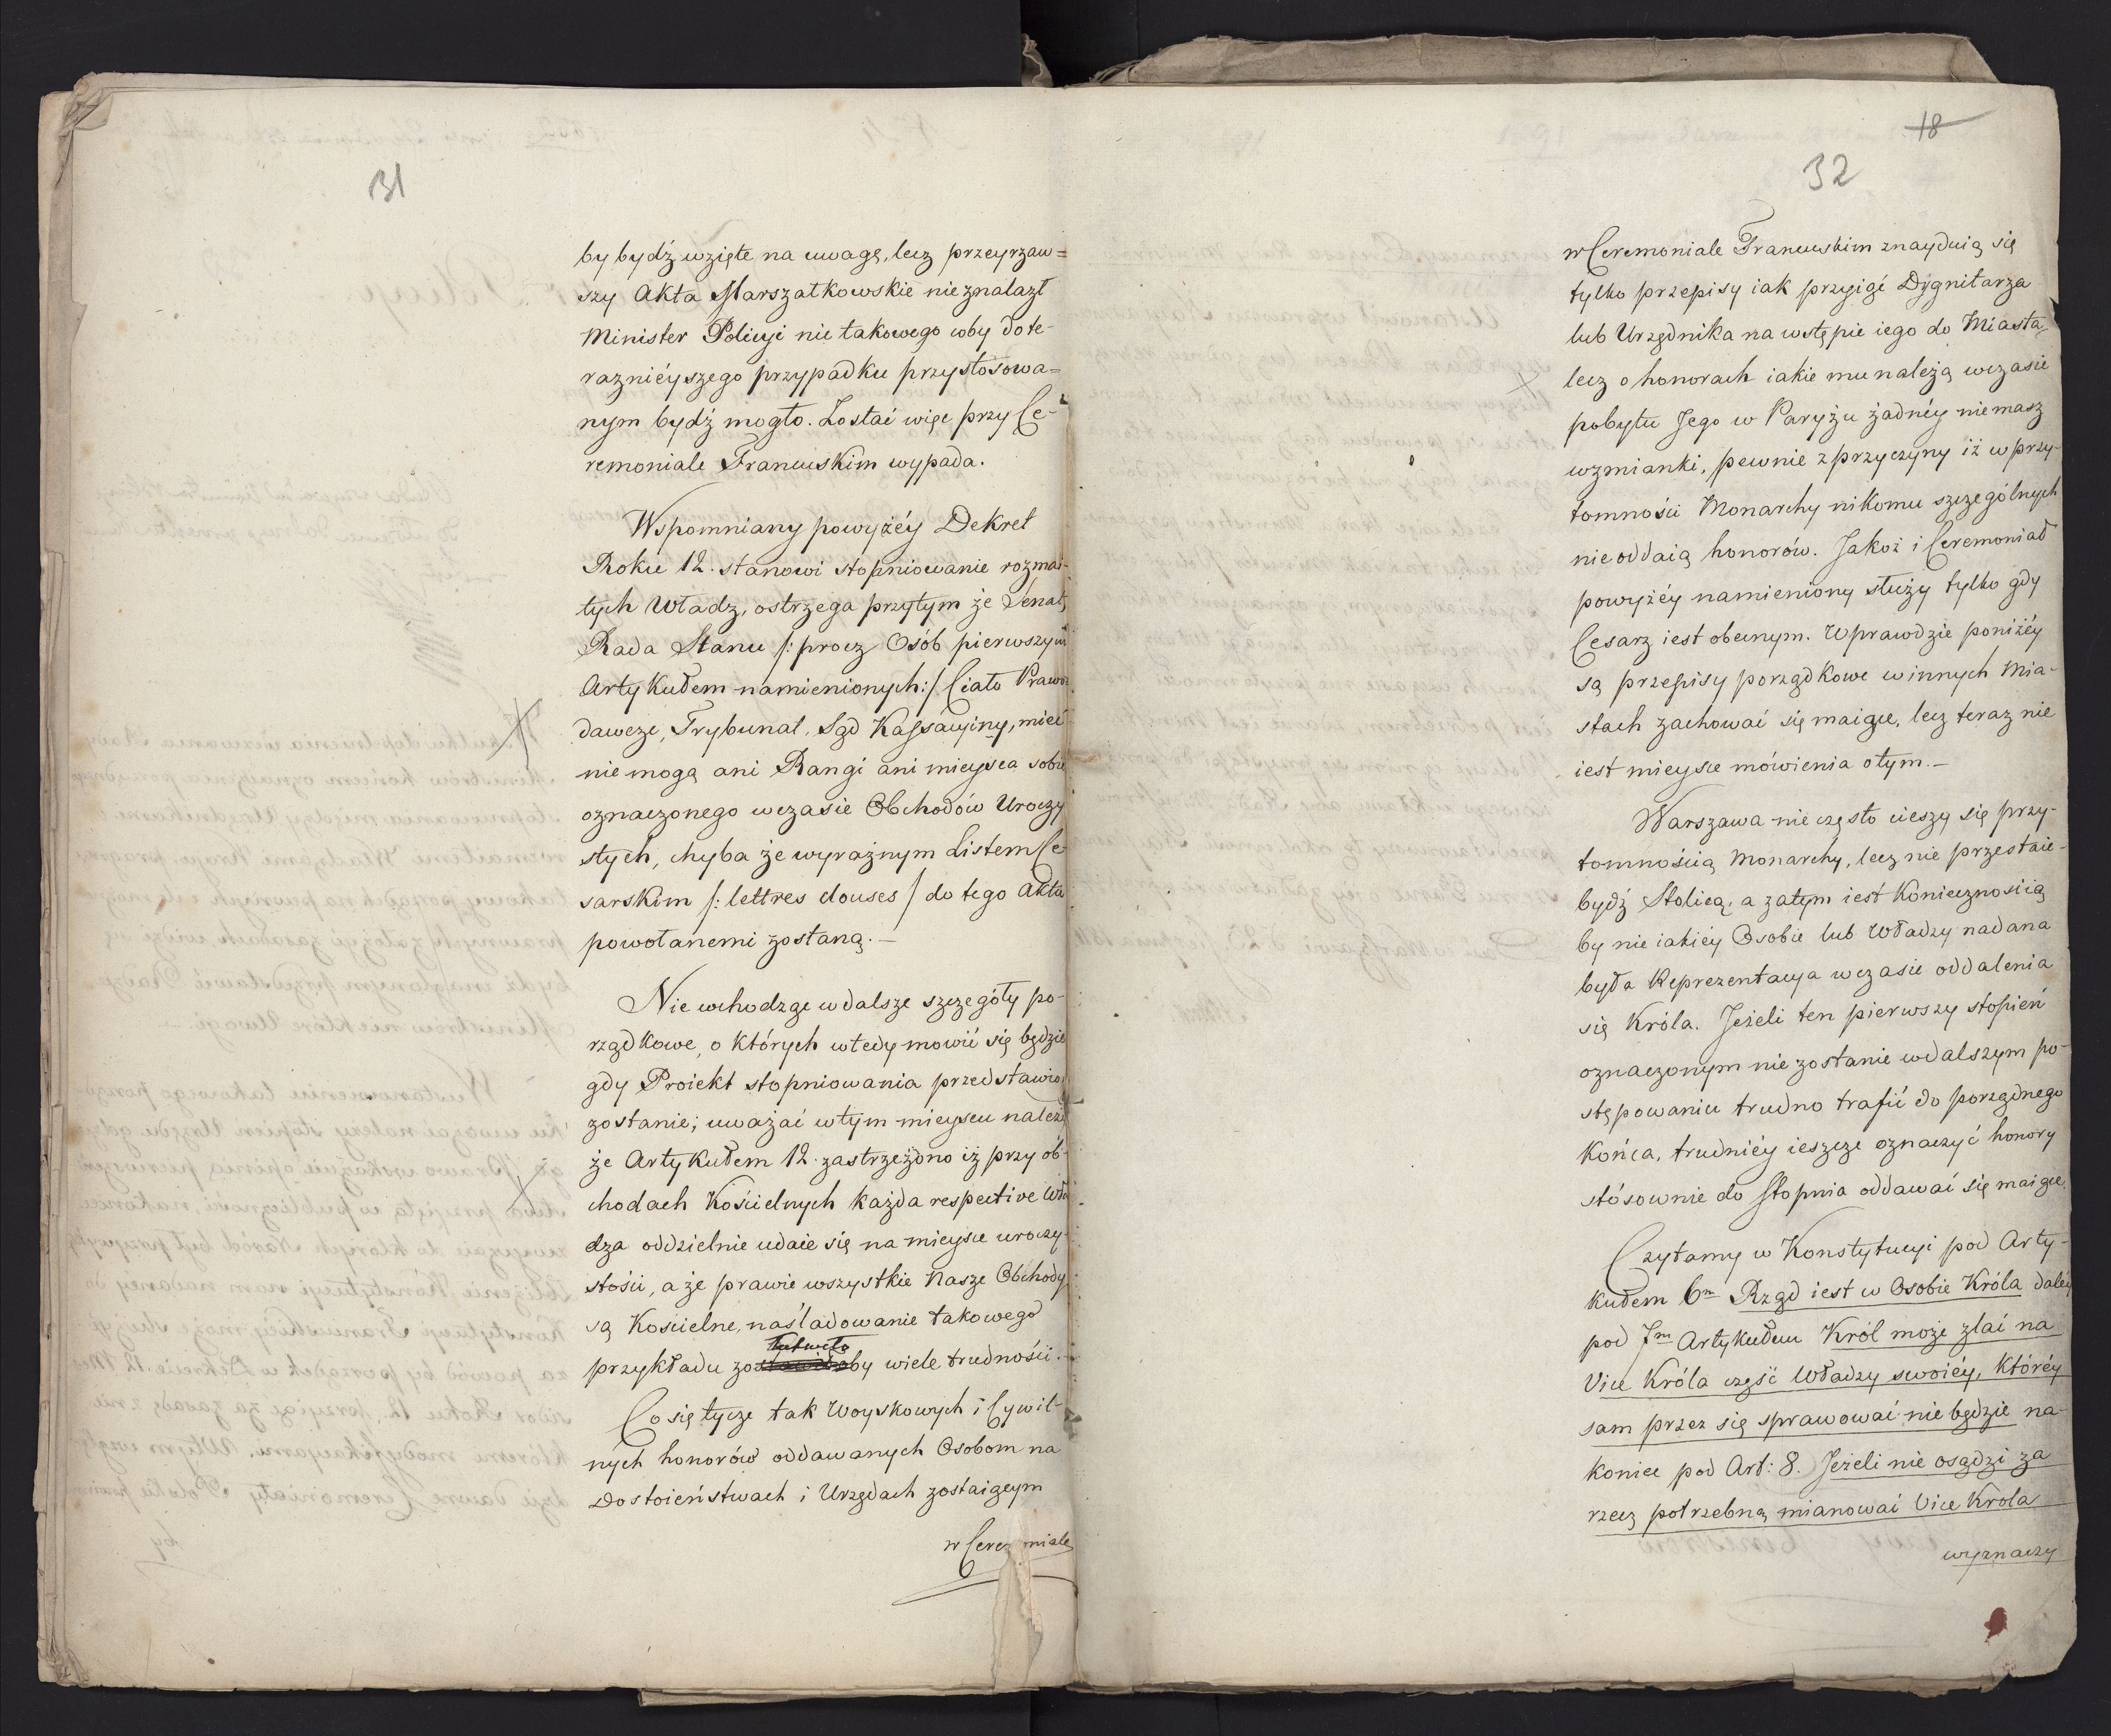 31
by bydź wzięte na uwagę, lecz przeyrzaw=
szy Akta Marszałkowskie nieznalazł
Minister Policyi nic takowego coby do te-
raznieyszego przypadku przystosowa=
nym bydź mogło. Zostać więc przy Ce-
remoniale Francuskim wypada.
Wspomniany powyżéy Dekret
Roku 12. stanowi stopniowanie rozmai-
tych Władz, ostrzega przytym że Senat,
Rada Stanu /: procz Osób pierwszym
Artykułem namienionych:/ Ciało Prawo
dawcze, Trybunał, Sąd Kassacyiny, mieć
nie mogą ani Rangi ani mieysca sobie
oznaczonego wczasie Obchodów Uroczy
stych, chyba że wyraźnym Listem Ce
sarskim /: lettres clouses / do tego Aktu
powołanemi zostaną. —
Nie wchodząc w dalsze szczegóły po-
rządkowe, o których wtedy mowić się będzie
gdy Proiekt stopniowania przedstawio
zostanie; uważać wtym mieyscu należy
że Artykułem 12. zastrzeżono iż przy ob-
chodach Kościelnych każda respective Wła
dza oddzielnie udaie się na mieysce uroczy-
stości, a że prawie wszystkie Nasze Obchody
są Kościelne, naśladowanie takowego
przykładu zo by wiele trudności. —
Co się tycze tak Woyskowych i Cywil-
nych honorów oddawanych Osobom na
Dostoieństwach i Urzędach zostaiącym
w Ceremoniale
18
32
w Ceremoniale Francuskim znayduią się
tylko przepisy iak przyiąć Dygnitarza
lub Urzędnika na wstępie iego do Miasta,
lecz o honorach iakie mu należą wczasie
pobytu Jego w Paryżu żadnéy niemasz
wzmianki, pewnie z przyczyny iż w przy-
tomności Monarchy nikomu szczególnych
nie oddaią honorów. Jakoż i Ceremoniał
powyżéy namieniony służy tylko gdy
Cesarz iest obecnym. Wprawdzie poniżéy
są przepisy porządkowe winnych Mia-
stach zachować się maiące, lecz teraz nie
iest mieysce mówienia o tym. —
Warszawa nie często cieszy się przy-
tomnością Monarchy, lecz nie przestaie
bydź Stolicą, a zatym iest Koniecznością
by nie iakiéy Osobie lub Władzy nadana
była Reprezentacya wczasie oddalenia
się Króla. Jeżeli ten pierwszy stopień
oznaczonym nie zostanie wdalszym po-
stępowaniu trudno trafić do porządnego
Końca, trudniéy ieszcze oznaczyć honory
stósownie do Stopnia oddawać się maiące.
Czytamy w Konstytucyi pod Arty-
kułem 6m Rząd iest w Osobie Króla daléy
pod 7m Artykułem Król może zlać na
Vice Króla część Władzy swoiéy, któréy
sam przez się sprawować nie będzie na-
koniec pod Art: 8. Jeżeli nie osądzi za
rzecz potrzebną mianować Vice Krola
wyznaczy